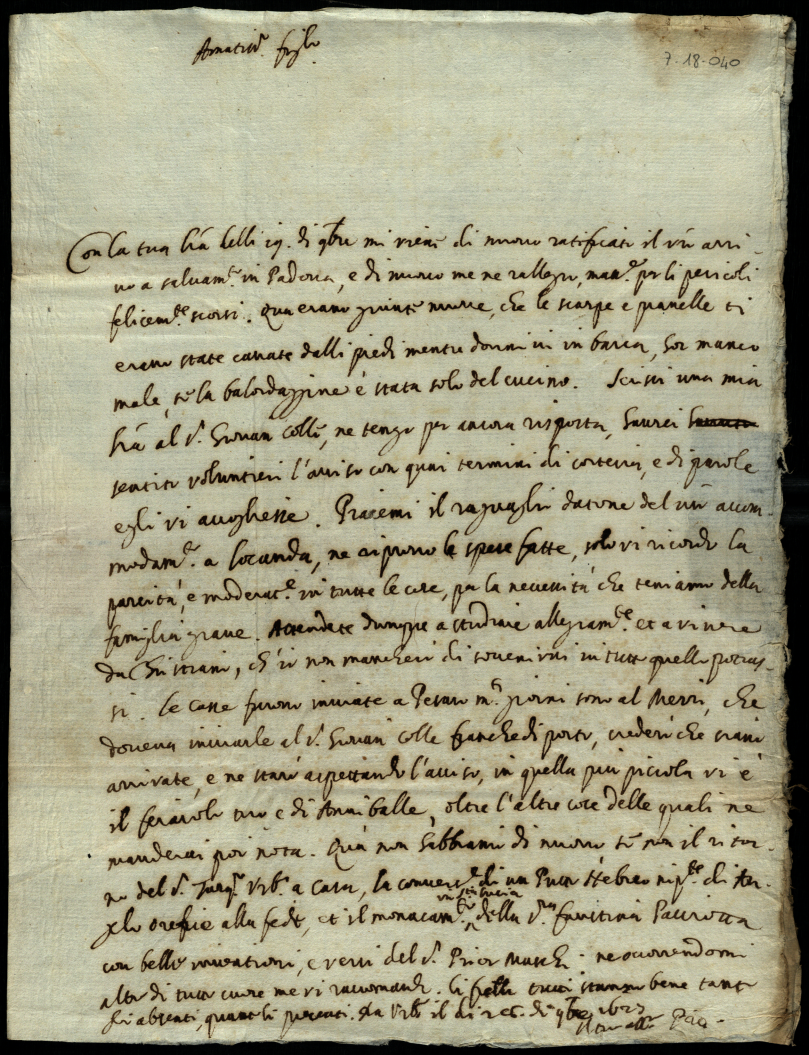 Amatis.mo figlo
7-18-040
Con la tua l'ra delli 19. di 9bre mi viene di nuovo ratificato il vro arri-
vo a salvam.te in Padova, e di nuovo me ne rallegro, mass.e p li pericoli
felicem.te scorsi. Qua erano giunte nuove, che le scarpe e pianelle ti
erano state cavate dalli piedi mentre dormivi in barca, hor manco
male, se la balordaggine è stata solo del cucino. Scrissi una mia
l'ra al S.r Giovan Colle, ne tengo per ancora risposta, haurei
sentito voluntieri l'aviso con quai termini di cortesia, e di parole
egli vi accogliesse. Piacemi il raguaglio datone del vro accom-
modam.to a locanda, ne a spese fatte, solo vi ricordo la
parcità, e moderat.e in tutte le cose, per la necessità che teniamo della
famiglia grave. Attendete dunque a studiare allegram.te et a vivere
da Christiani, ch'io non mancherò di sovenirvi in tutto quello potras-
si. Le casse furono inviate a Pesaro m.ti giorni sono al Merzi, che
doveva inviarle al S.r Giovan Colle franche di porto, crederò che siano
arrivate, e ne starò aspettando l'aviso, in quella più piccola vi è
il feraiolo tuo e di Anniballe, oltre l'altre cose delle quali ne
manderai poi nota. Quà non habbiamo di nuovo se non il ritor-
no del S.r Vrb.o a casa, la convers.e di un Putto Hebreo nip.te di An-
gelo orefice alla fede, et il monacam.to della S.ra Faustina Paciotta
in S.ta Lucia
con belle inventioni, e versi del S.r Prior Musch. ne occorrendomi
altro di tutto cuore me vi raccomando. Li fratelli tuoi stanno bene tanto
li absenti, quanto li presenti. Da Urb.o il di 26. di 9bre 1623